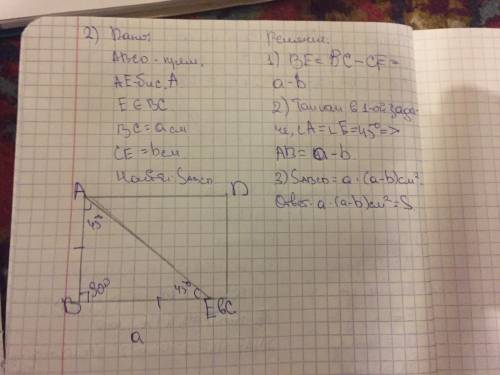 2) Дано:
ABCD - прям.
AE-бис, A
E ∈ BC
BC = a см
CE = b см
Найти: S ABCD
Решение:
1) BE = BC - CE =
a-b
2) Так как в 1-ой зада-
че, ∠A = ∠E = 45° =>
AB = a - b
3) S ABCD = a · (a-b) см²
Ответ: a · (a-b) см² = S
A
D
45°
90°
45°
B
E
b
C
a